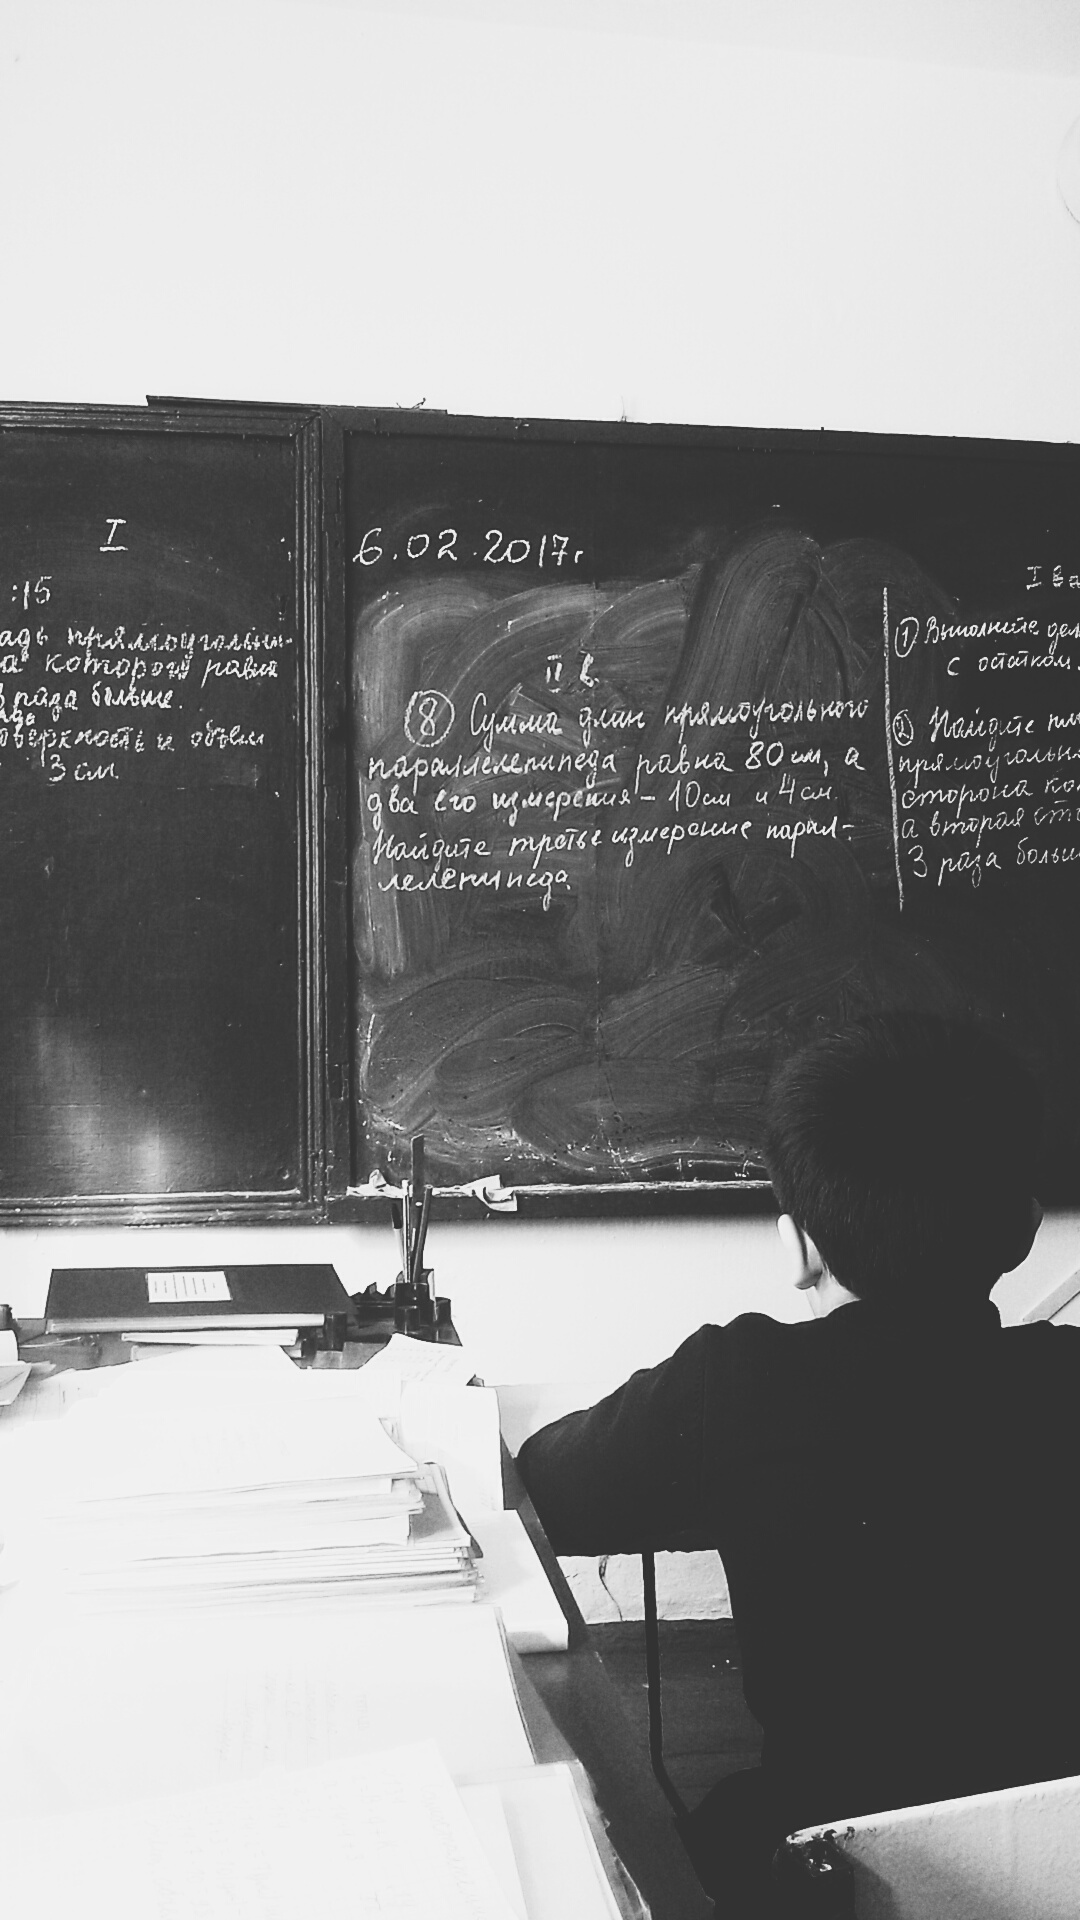 I
:15
прямоугольни-
которого равна
3 раза больше.
и объём
3 см.
6.02.2017г.
II в.
⑧ Сумма длин прямоугольного
параллелепипеда равна 80 см, а
два его измерения - 10 см и 4 см.
Найдите третье измерение парал-
лелепипеда.
I ва
① Выполните дел
с остатком.
② Найдите пл
прямоугольни
сторона ко
а вторая сто
3 раза больш